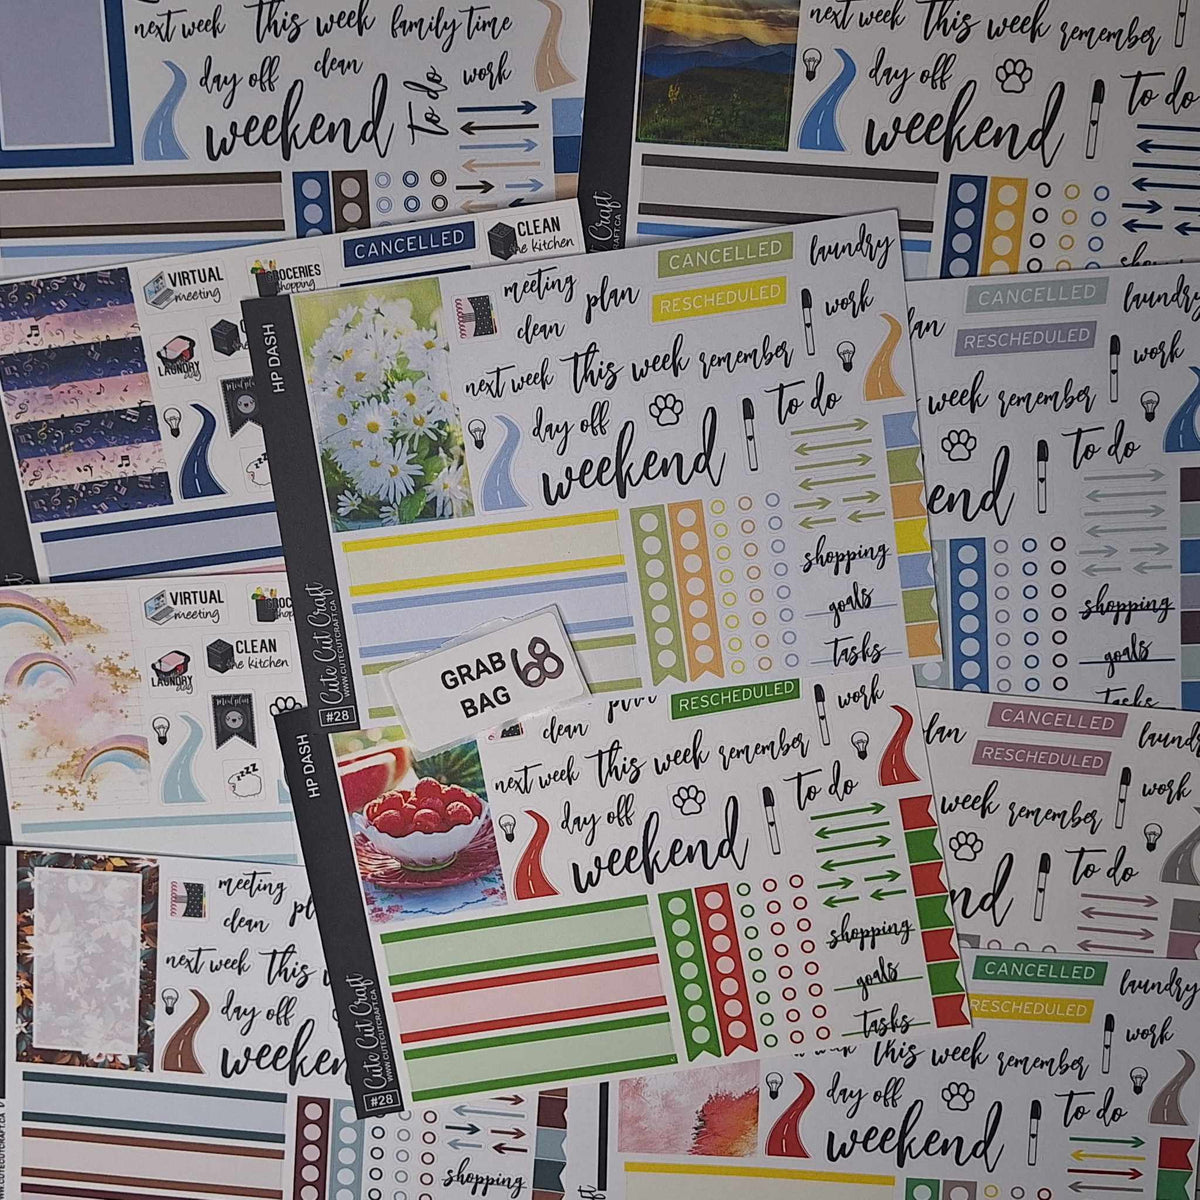 next week this week family time
day off clean
To do
work
weekend
this week remember
day off
To do
weekend
Craft
CANCELLED
CLEAN
the kitchen
VIRTUAL
meeting
GROCERIES
shopping
LAUNDRY
day
Meal plan
zzz
HP DASH
meeting
plan
clean
CANCELLED
RESCHEDULED
laundry
work
next week this week remember
day off
To do
weekend
shopping
goals
Tasks
Cute Cut Craft
WWW.CUTECUTCRAFT.CA
#28
CANCELLED
RESCHEDULED
work
week remember
To do
shopping
goals
Tasks
VIRTUAL
meeting
CLEAN
the kitchen
LAUNDRY
day
Meal plan
zzz
GRAB
BAG
68
HP DASH
clean
RESCHEDULED
work
next week this week remember
day off
To do
weekend
shopping
goals
Tasks
Cute Cut Craft
WWW.CUTECUTCRAFT.CA
#28
CANCELLED
RESCHEDULED
work
week remember
To do
meeting
clean
next week this
day off
weekend
shopping
WWW.CUTECUTCRAFT.CA
CANCELLED
RESCHEDULED
laundry
work
this week remember
day off
To do
weekend